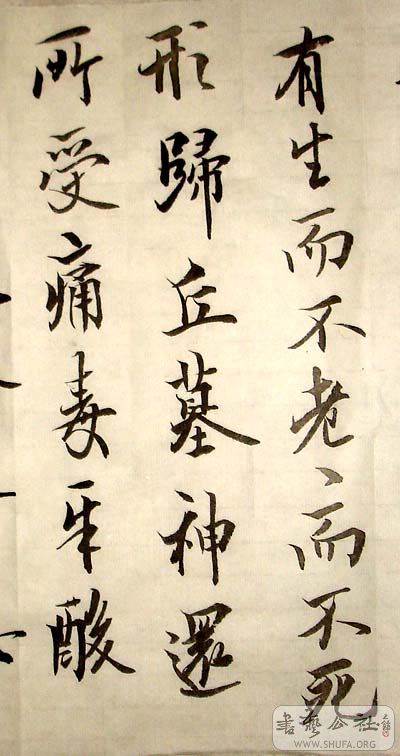 有生而不老〻而不死
形歸丘墓神還
所受痛毒辛酸
書藝公社
WWW.SHUFA.ORG